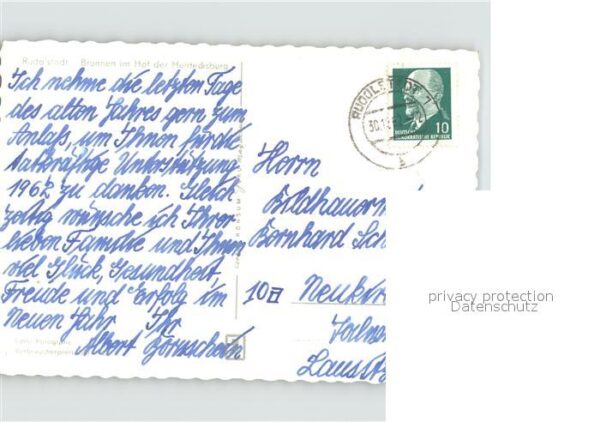 Rudolstadt Brunnen im Hof der Heidecksburg
Ich nehme die letzten Tage
des alten Jahres gern zum
Anlaß, um Ihnen für die
tatkräftige Unterstützung
1962 zu danken. Gleich
zeitig wünsche ich Ihrer
lieben Familie und Ihnen
viel Glück, Gesundheit,
Freude und Erfolg im
Neuen Jahr Ihr
Albert
RUDOLSTADT 1
30.12
10
DEUTSCHE
DEMOKRATISCHE REPUBLIK
Herrn
Bildhauerm
Bernhard Sch
10a Neukir
Lausitz
privacy protection
Datenschutz